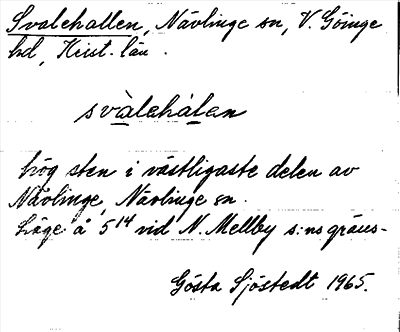 Svalehallen, Nävlinge sn, V. Göinge
hd, Krist. län.
svàlehálen
hög sten i västligaste delen av
Nävlinge, Nävlinge sn.
Läge å 5¹⁴ vid N. Mellby s:ns gräns-
Gösta Sjöstedt 1965.